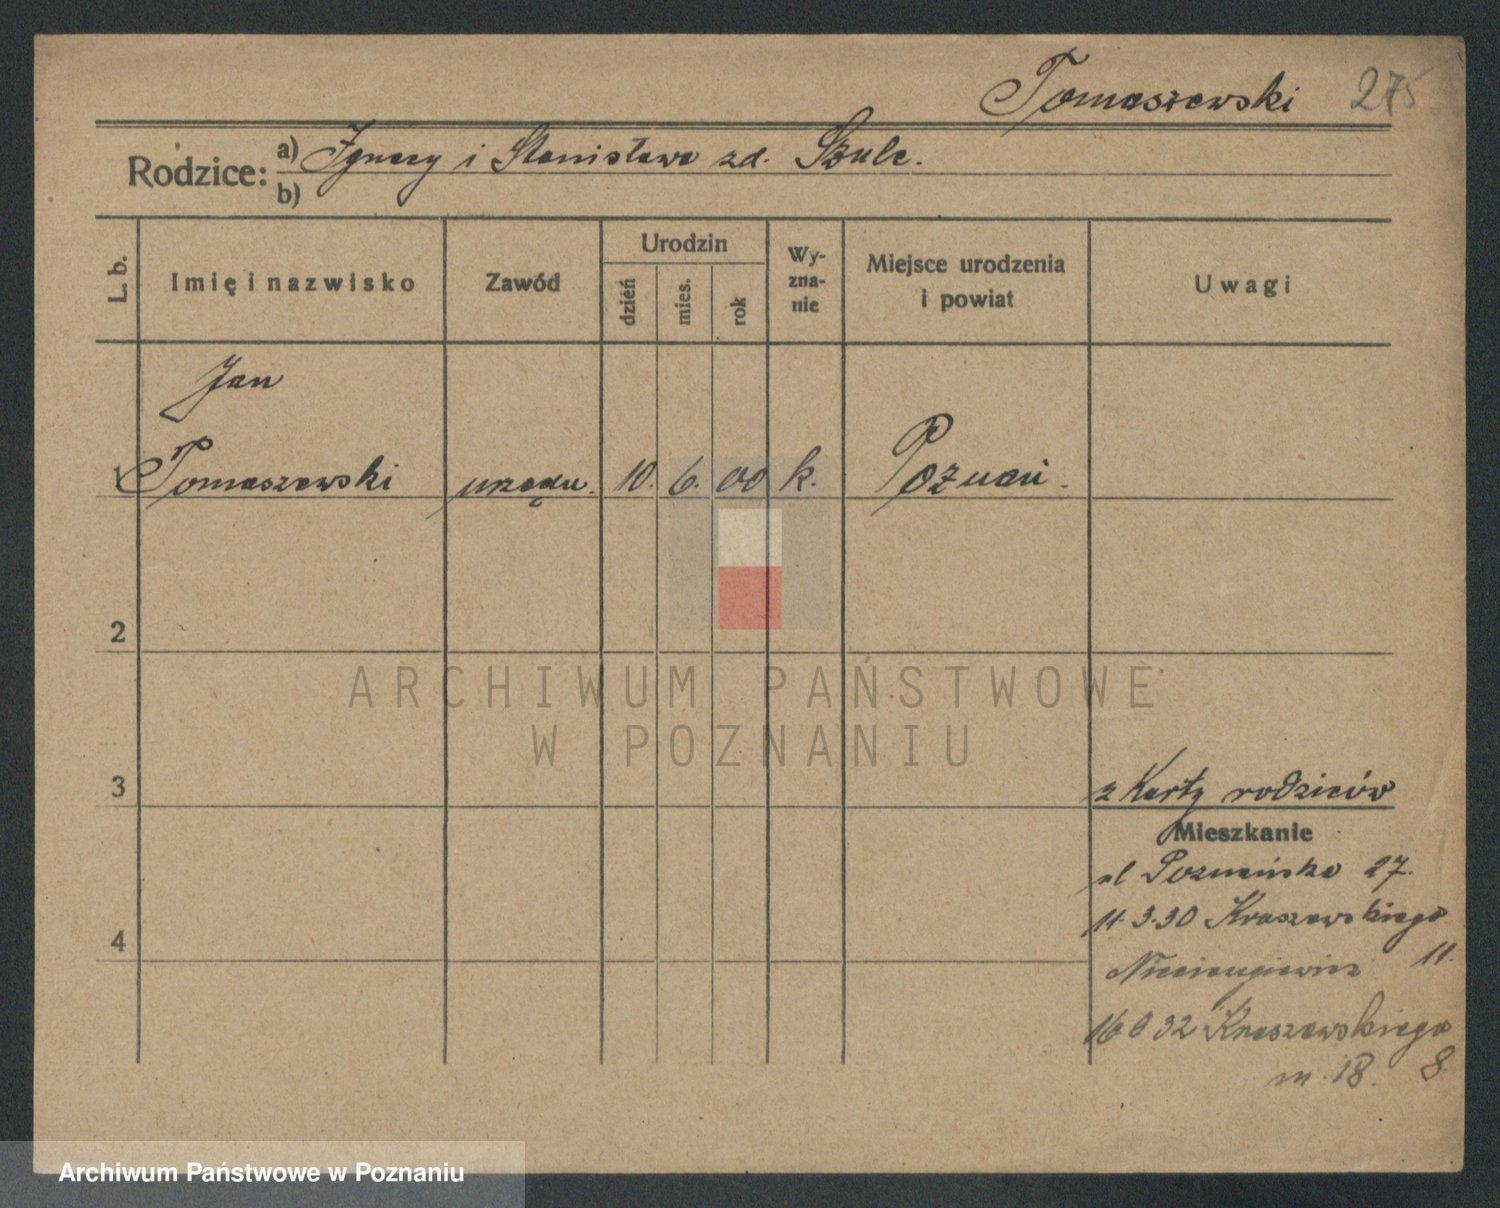 Tomaszewski 275
Rodzice: a) Ignacy i Stanisława zd. Szulc.
b)
L. b.
Imię i nazwisko
Zawód
Urodzin
dzień
mies.
rok
Wy-
zna-
nie
Miejsce urodzenia
i powiat
Uwagi
Jan
Tomaszewski urzędn. 10. 6. 00 k. Poznań.
2
3
z Karty rodziców
Mieszkanie
ul Poznańska 27.
11.3.30 Kraszewskiego
11.
4
32 Kraszewskiego
m. 18. 8.
ARCHIWUM PAŃSTWOWE
W POZNANIU
Archiwum Państwowe w Poznaniu